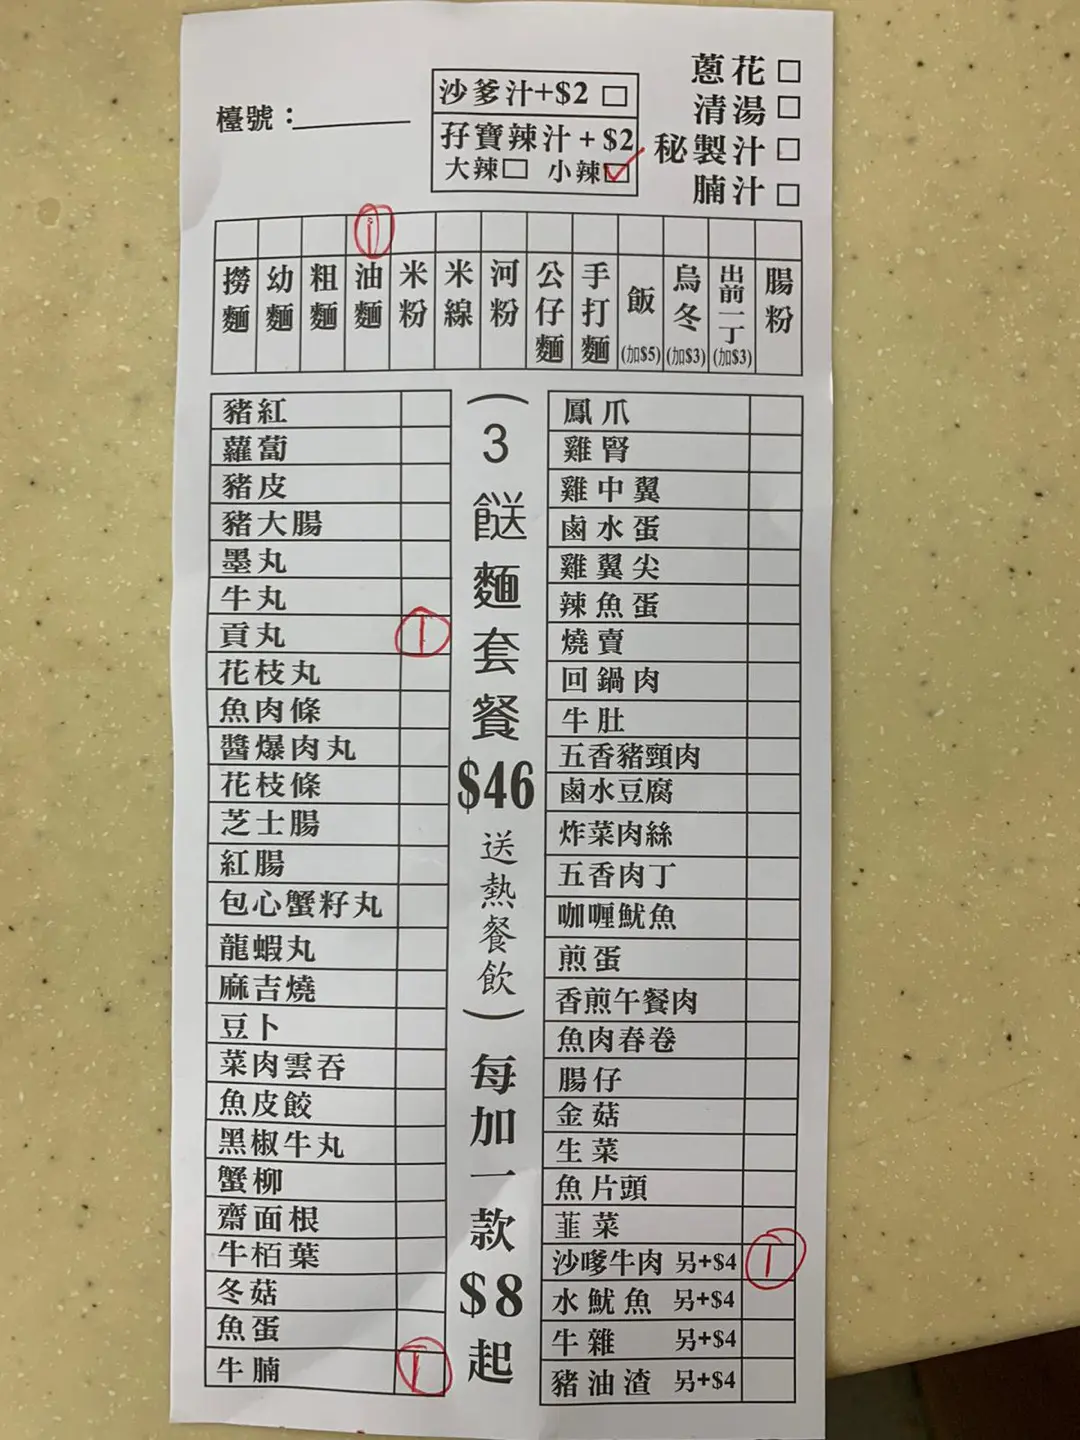 檯號：
沙爹汁+$2 □
孖寶辣汁+$2
大辣□ 小辣☑
蔥花 □
清湯 □
秘製汁 □
腩汁 □
1
撈麵
幼麵
粗麵
油麵
米粉
米線
河粉
公仔麵
手打麵
飯 (加$5)
烏冬 (加$3)
出前一丁 (加$3)
腸粉
豬紅
蘿蔔
豬皮
豬大腸
墨丸
牛丸
貢丸 1
花枝丸
魚肉條
醬爆肉丸
花枝條
芝士腸
紅腸
包心蟹籽丸
龍蝦丸
麻吉燒
豆卜
菜肉雲吞
魚皮餃
黑椒牛丸
蟹柳
齋面根
牛栢葉
冬菇
魚蛋
牛腩 1
(3餸麵套餐$46送熱餐飲)每加一款$8起
鳳爪
雞腎
雞中翼
鹵水蛋
雞翼尖
辣魚蛋
燒賣
回鍋肉
牛肚
五香豬頸肉
鹵水豆腐
炸菜肉絲
五香肉丁
咖喱魷魚
煎蛋
香煎午餐肉
魚肉春卷
腸仔
金菇
生菜
魚片頭
韮菜
沙嗲牛肉 另+$4 1
水魷魚 另+$4
牛雜 另+$4
豬油渣 另+$4